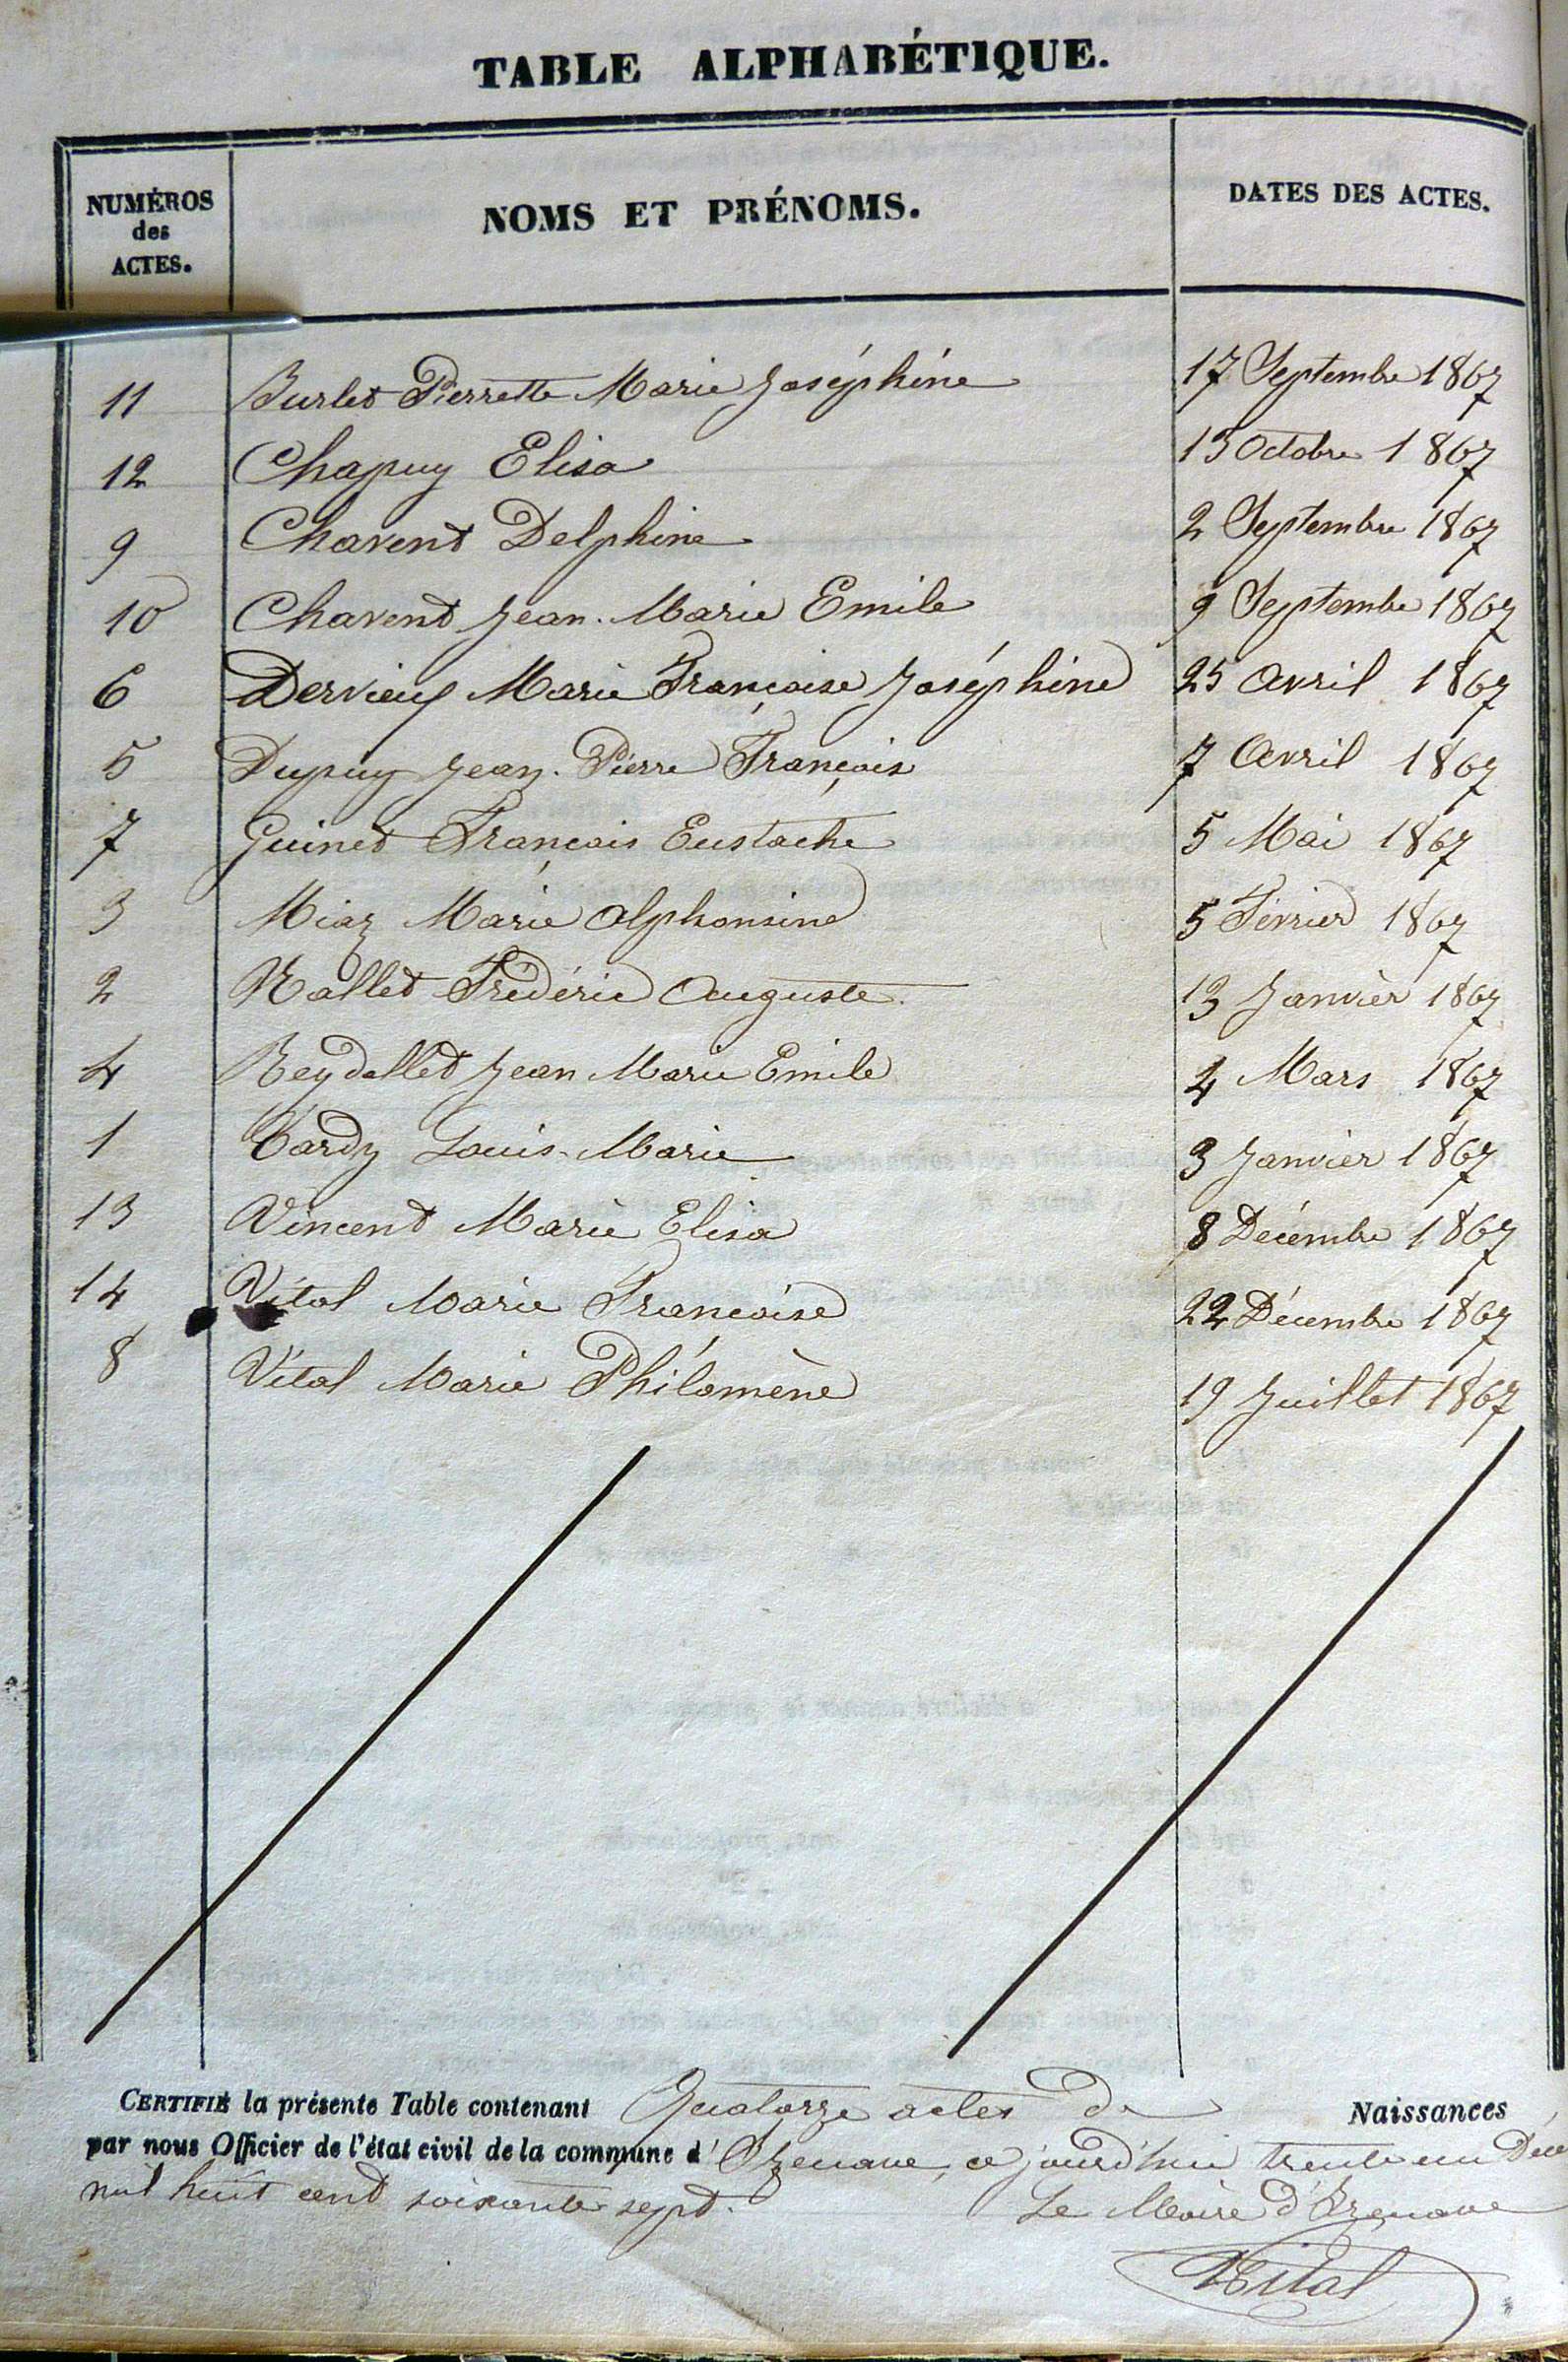 TABLE ALPHABÉTIQUE.
NUMÉROS
des
ACTES.
NOMS ET PRÉNOMS.
DATES DES ACTES.
11 Burlet Pierrette Marie Joséphine 17 Septembre 1867
12 Chapuy Elisa 13 Octobre 1867
9 Chavent Delphine 2 Septembre 1867
10 Chavent Jean-Marie Emile 9 Septembre 1867
6 Dervieux Marie Françoise Joséphine 25 Avril 1867
5 Dupuy Jean-Pierre François 7 Avril 1867
7 Guinet François Eustache 5 Mai 1867
3 Miaz Marie Alphonsine 5 Février 1867
2 Nallet Frédéric Auguste. 13 Janvier 1867
4 Reydellet Jean Marie Emile 4 Mars 1867
1 Tardy Louis-Marie 3 Janvier 1867
13 Vincent Marie Elisa 8 Décembre 1867
14 Vital Marie Françoise 22 Décembre 1867
8 Vital Marie Philomène 19 Juillet 1867
CERTIFIÉ la présente Table contenant Quatorze actes de Naissances
par nous Officier de l'état civil de la commune d' Izenave, ce jourd'hui trente un Déce
mil huit cent soixante sept.
Le Maire d'Izenave
Vital